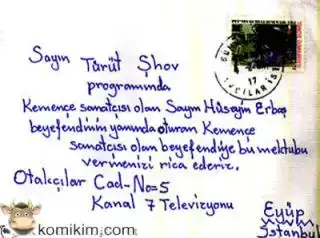 Sayın Türüt Şhov
programında
Kemence sanatçısı olan Sayın Hüseyin Erbaş
beyefendinin yanında oturan Kemence
sanatçısı olan beyefendiye bu mektubu
vermenizi rica ederiz.
Otakçılar Cad-No=5
Kanal 7 Televizyonu
Eyüp
İstanbul
17
komikim.com